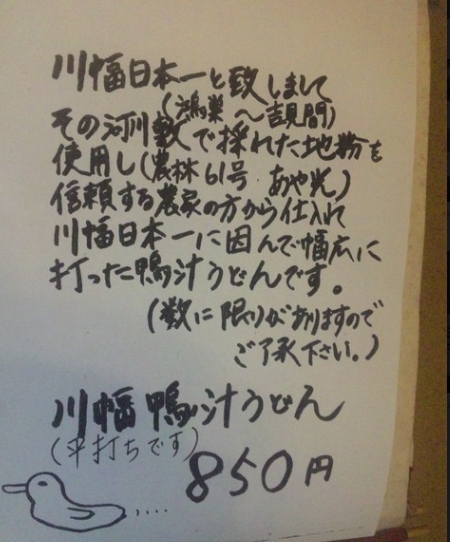 川幅日本一と致しまして
(鴻巣〜吉見間)
その河川敷で採れた地粉を
使用し(農林61号 あや光)
信頼する農家の方から仕入れ
川幅日本一に因んで幅広に
打った鴨汁うどんです。
(数に限りがありますので
ご了承下さい。)
川幅鴨汁うどん
(平打ちです)
850円